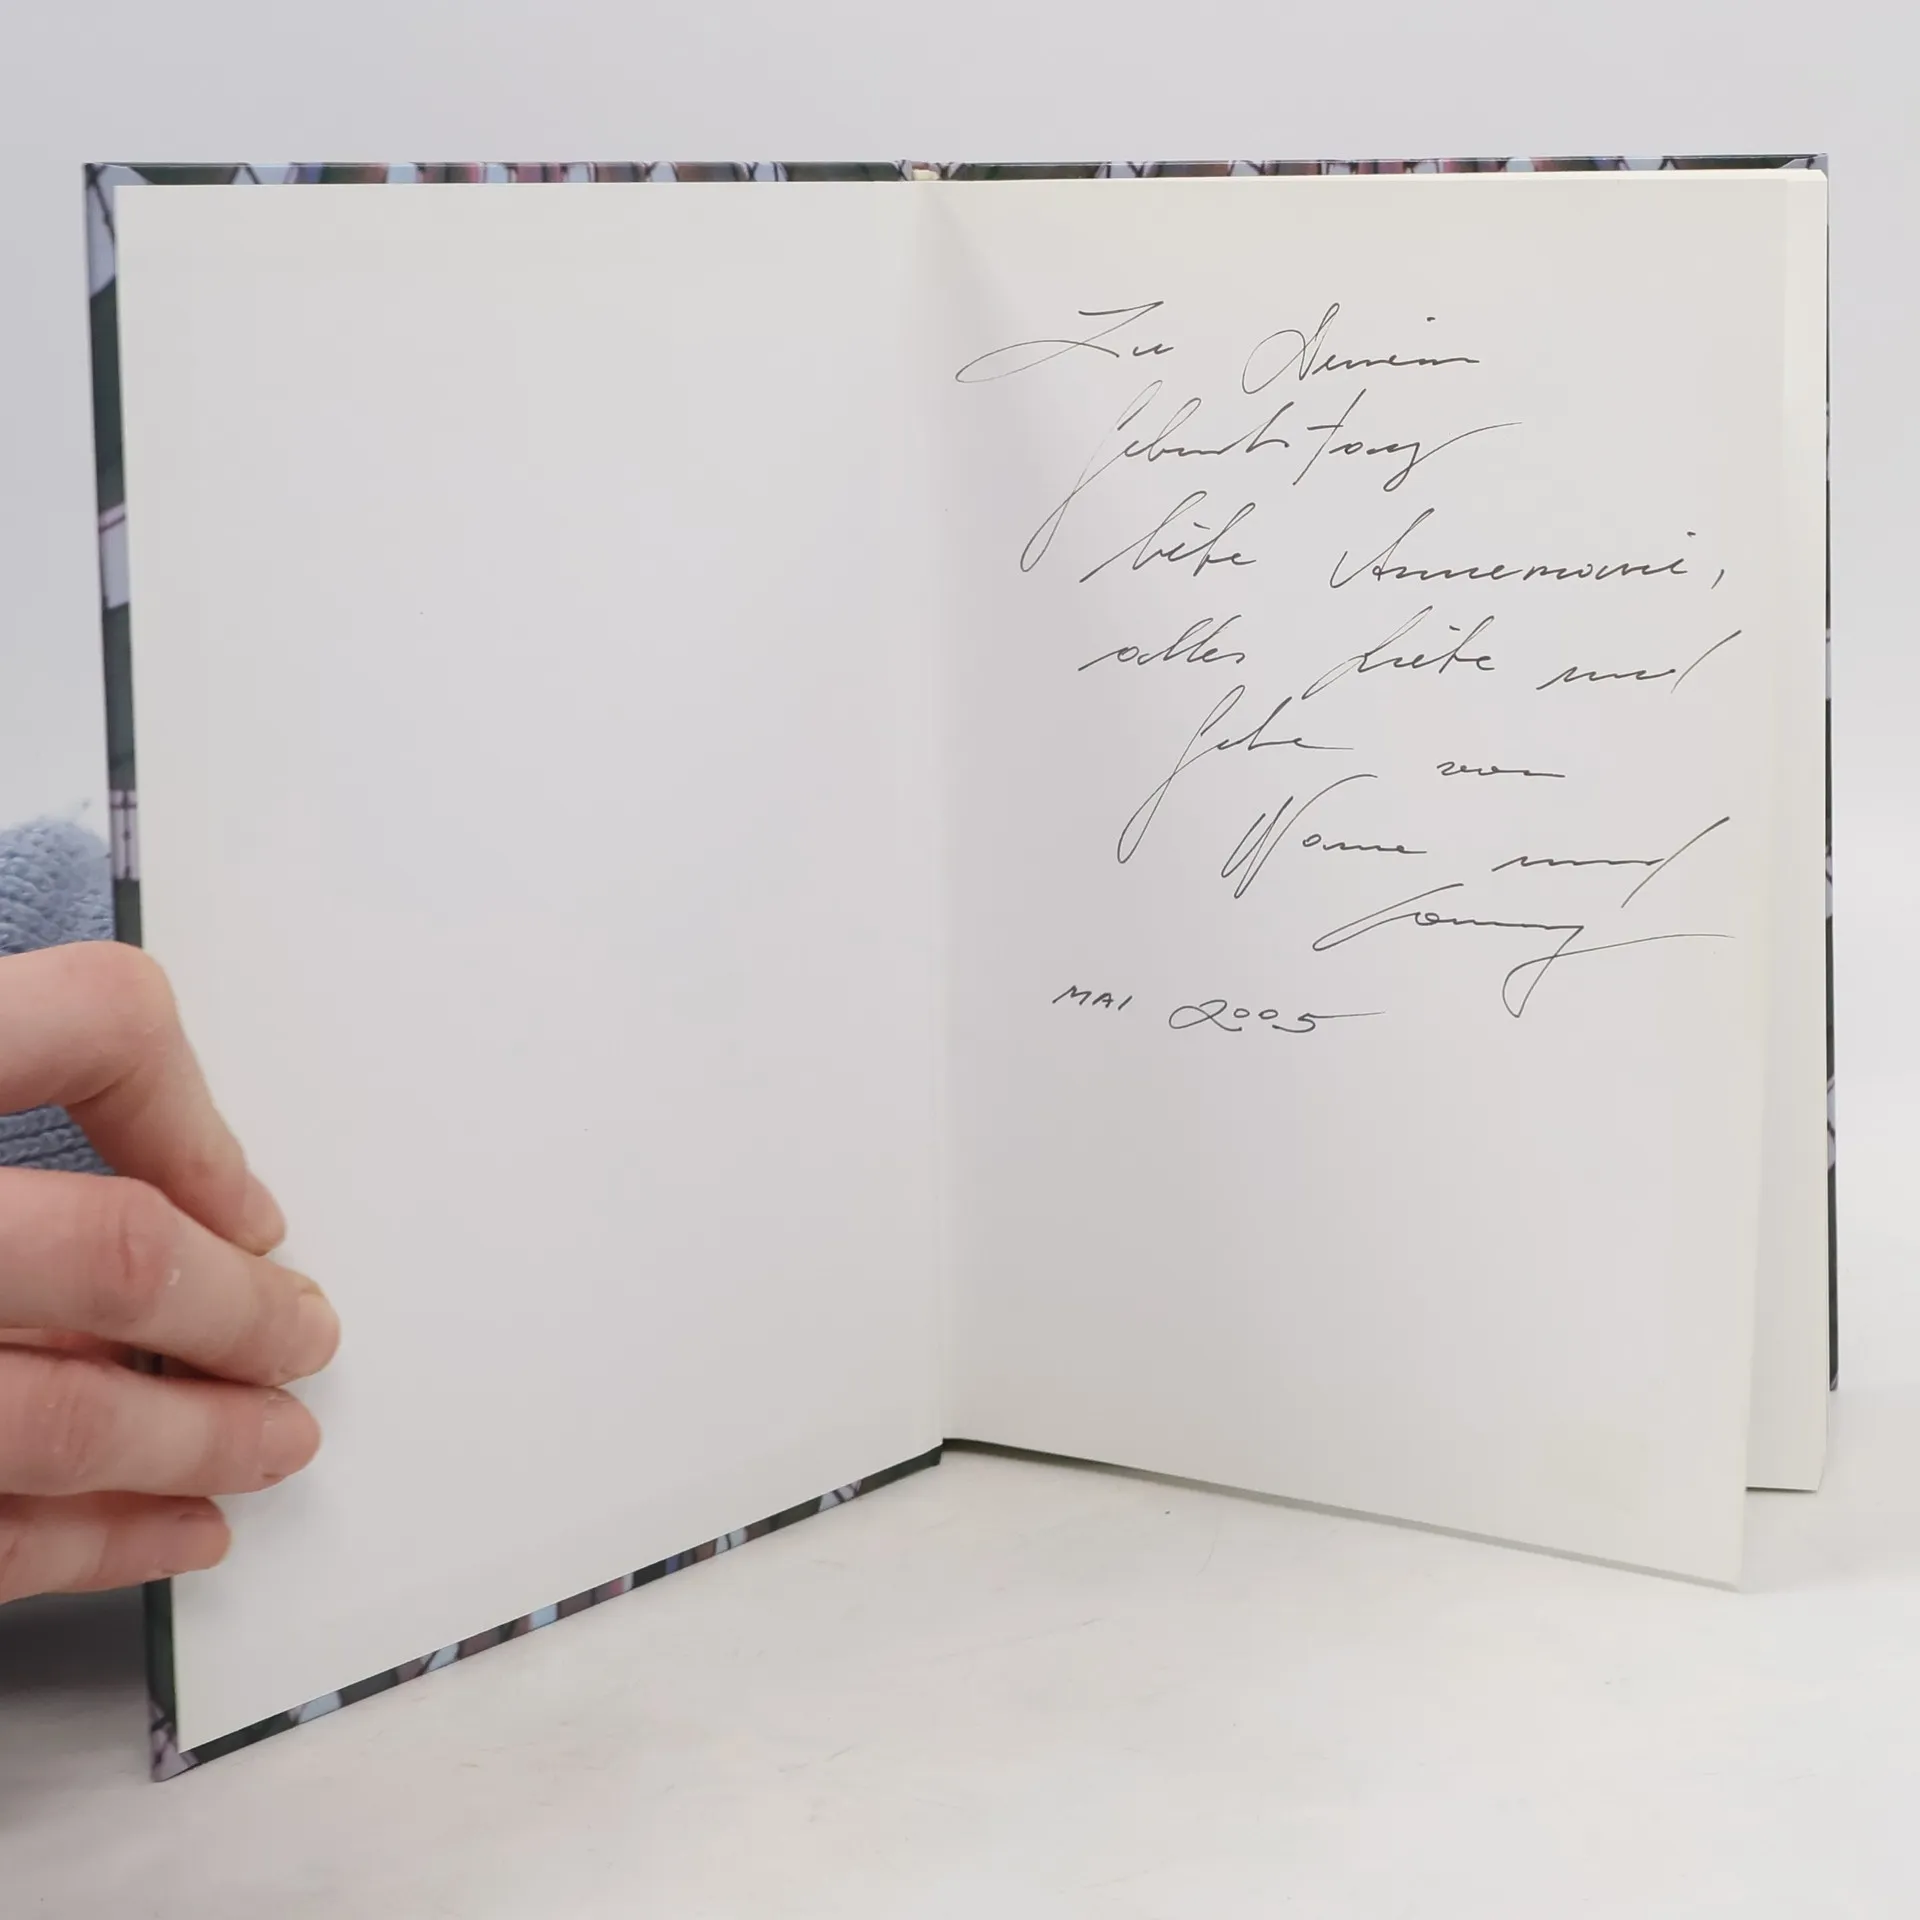 Zu Deinem
Geburtstag
liebe Annemarie,
alles Liebe und
Gute von
und
Conny
MAI 2005